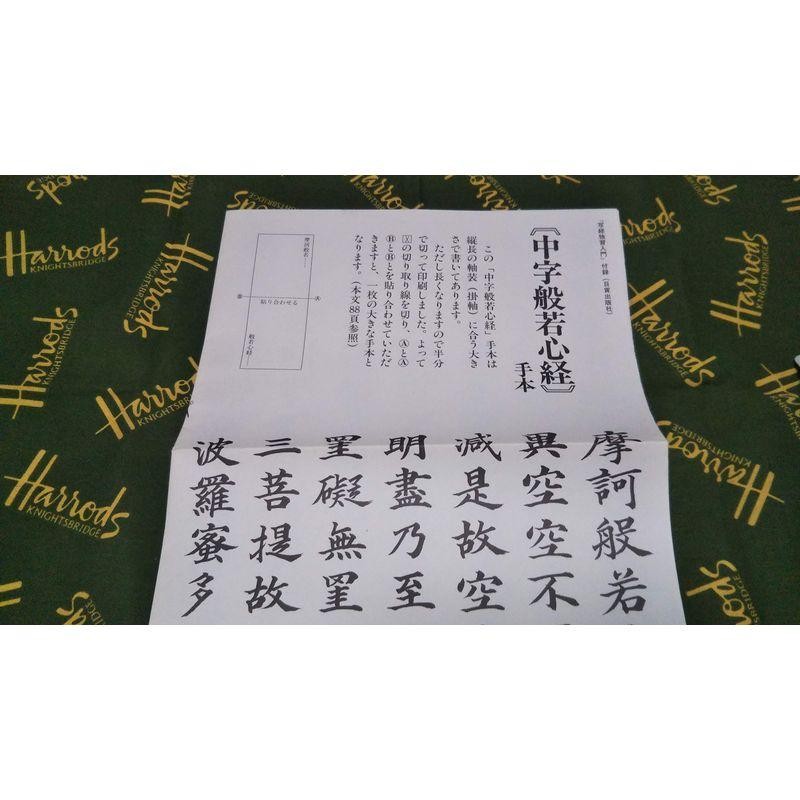 『写経独習入門』付録（日貿出版社）
《中字般若心経》
手本
この「中字般若心経」手本は
縦長の軸装（掛軸）に合う大き
さで書いてあります。
ただし長くなりますので半分
で切って印刷しました。よって
の切り取り線を切り、ⒶとⒶ
ⒷとⒷとを貼り合わせていただ
きますと、一枚の大きな手本と
なります。（本文88頁参照）
摩訶般若……
Ⓐ
貼り合わせる
Ⓑ
般若心経……
摩訶般若
異空空不
減是故空
明盡乃至
罣礙無罣
三菩提故
波羅蜜多
Harrods
KNIGHTSBRIDGE
Harrods
KNIGHTSBRIDGE
Harrods
KNIGHTSBRIDGE
Harrods
KNIGHTSBRIDGE
Harrods
KNIGHTSBRIDGE